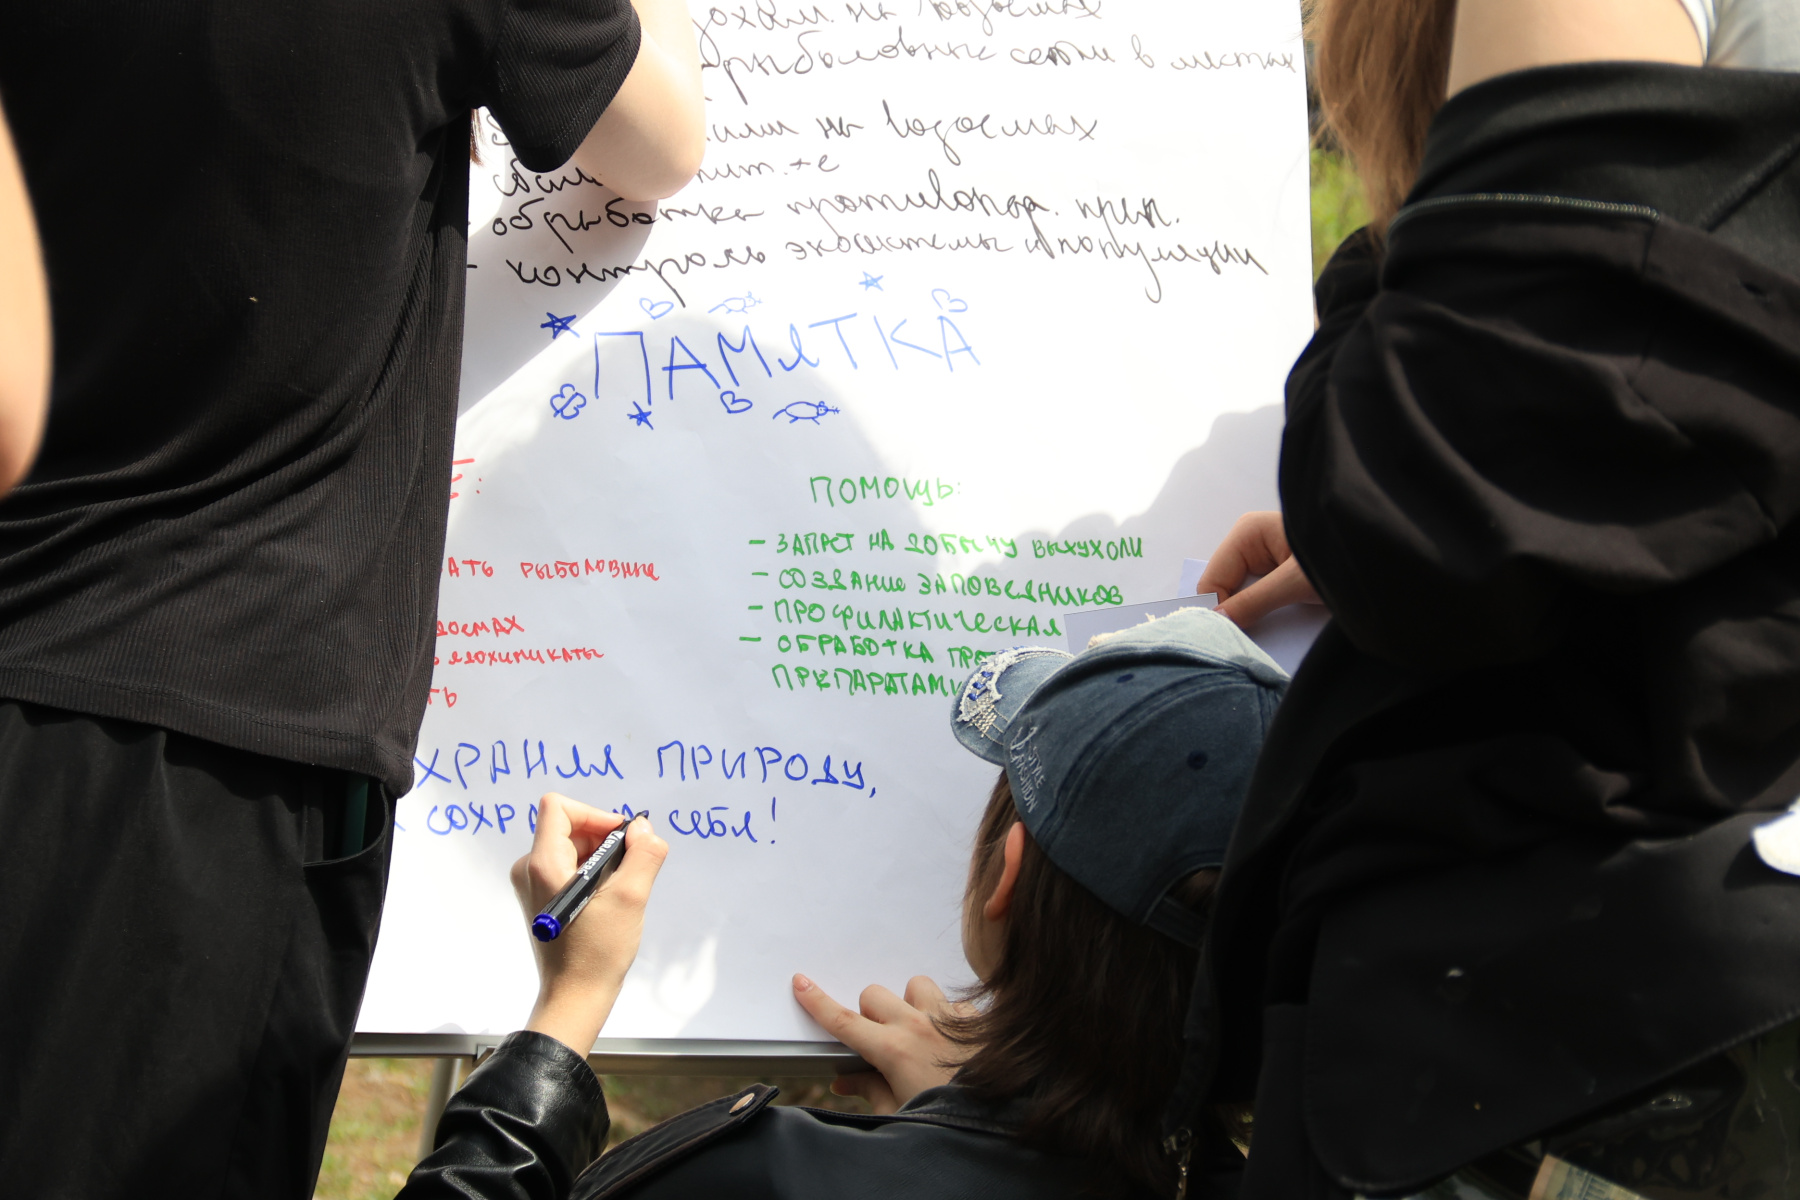 на водоемах
рыболовные сети в местах
на водоемах
пит. +е
- обработка противопар. преп.
- контроль экосистемы и популяции
ПАМЯТКА
Е:
АТЬ РЫБОЛОВНЫЕ
ДОЕМАХ
Ь ЯДОХИМИКАТЫ
ТЬ
ПОМОЩЬ:
- ЗАПРЕТ НА ДОБЫЧУ ВЫХУХОЛИ
- СОЗДАНИЕ ЗАПОВЕДНИКОВ
- ПРОФИЛАКТИЧЕСКАЯ
- ОБРАБОТКА ПРО
ПРЕПАРАТАМИ
ХРАНЯЯ ПРИРОДУ,
СОХРА себя!
STYLE
FASHION